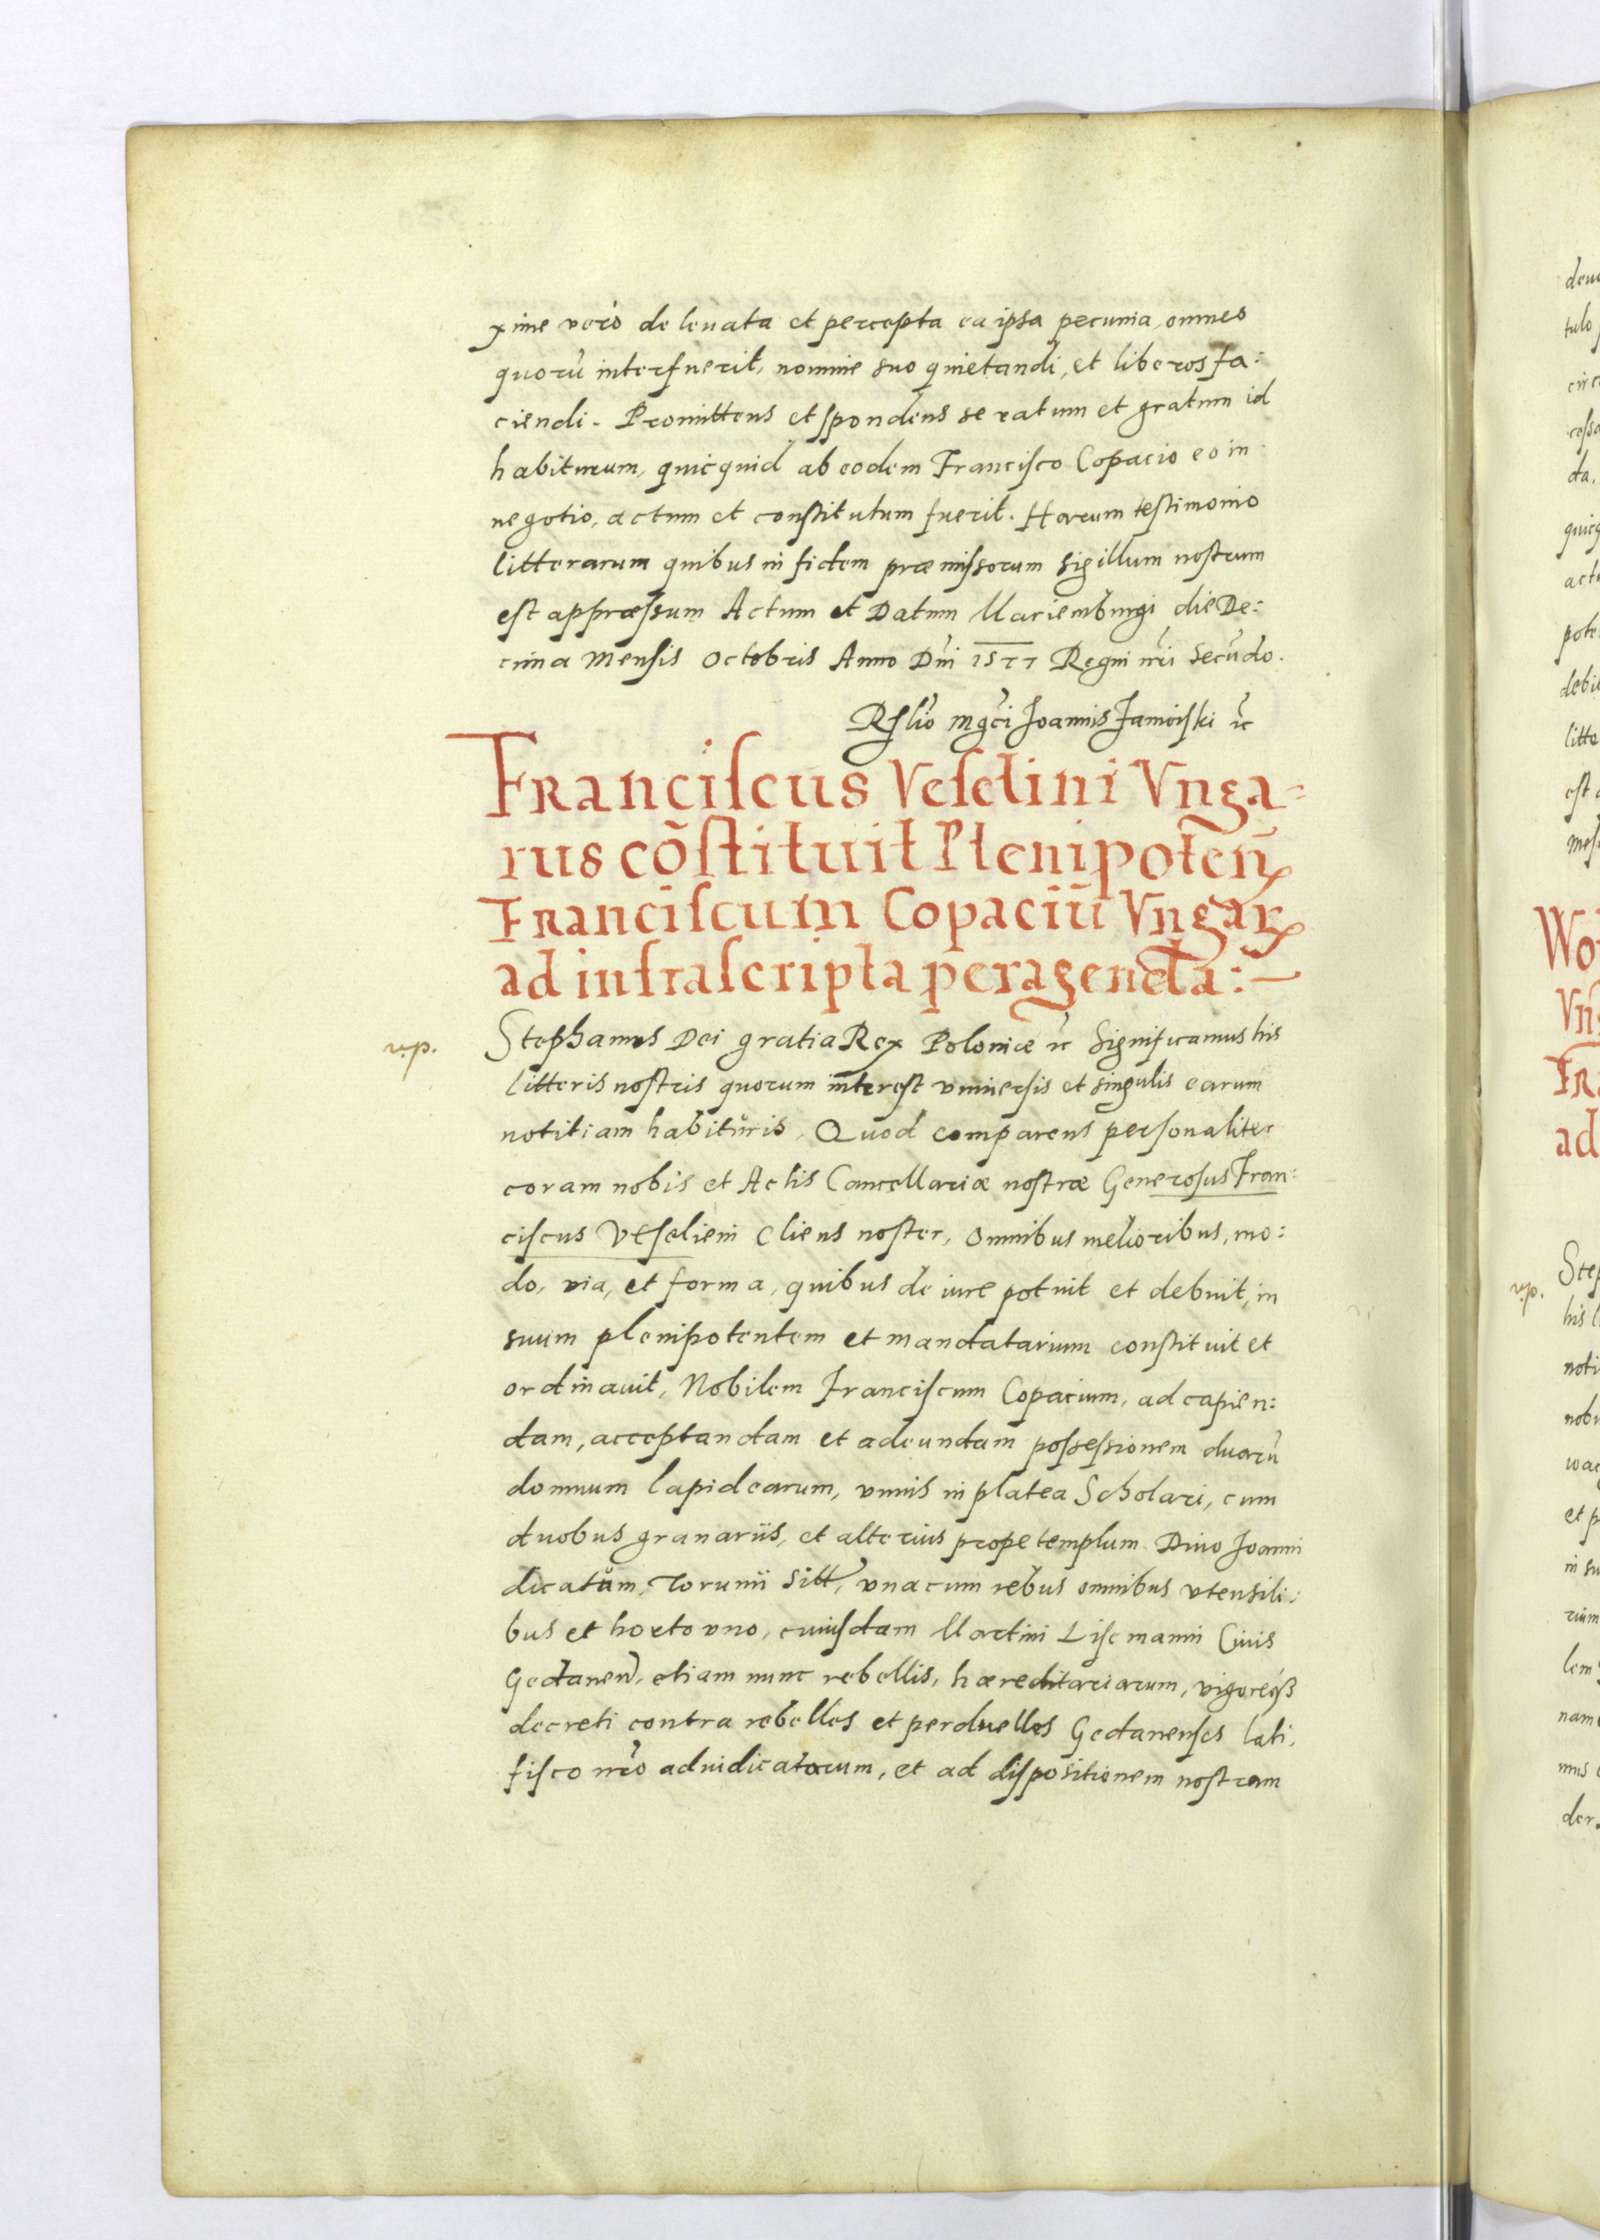 xime verò de leuata et percepta ea ipsa pecunia, omnes
quorū interfuerit, nomine suo quietandi, et liberos fa:
ciendi. Promittens et spondens se ratum et gratum id
habiturum, quicquid ab eodem Francisco Copacio eo in
negotio, actum et constitutum fuerit. Harum testimonio
litterarum quibus in fidem præmissorum sigillum nostrum
est appræssum Actum et Datum Mariemburgi die De:
cima Mensis Octobris Anno Dni 1577 Regni nri Secūdo.
Rslio mgci Joannis Zamoiski
Franciscus Veselini Vnga=
rus cōstituit Plenipoten
Franciscum Copaciū Vngar
ad infrascripta peragenda:—
r.p.
Stephanus Dei gratia Rex Poloniæ Significamus his
litteris nostris quorum interest vniuersis et singulis earum
notitiam habituris, Quod comparens personaliter
coram nobis et Actis Cancellariæ nostræ Generosus Fran:
ciscus Veselieni Cliens noster, omnibus melioribus, mo:
do, via, et forma, quibus de iure potuit et debuit, in
suum plenipotentem et mandatarium constituit et
ordinauit, Nobilem Franciscum Copacium, ad capien:
dam, acceptandam et adeundam possessionem duarū
domuum lapidearum, vnius in platea Scholari, cum
duobus granariis, et alterius prope templum Diuo Joanni
dicatum, Torunii sitt, vnacum rebus omnibus vtensili:
bus et horto vno, cuiusdam Martini Lisemanni Ciuis
Gedanen, etiam nunc rebellis, hæreditariarum, vigore
decreti contra rebelles et perduelles Gedanenses lati,
fisco nro adiudicatarum, et ad dispositionem nostram
r.p.